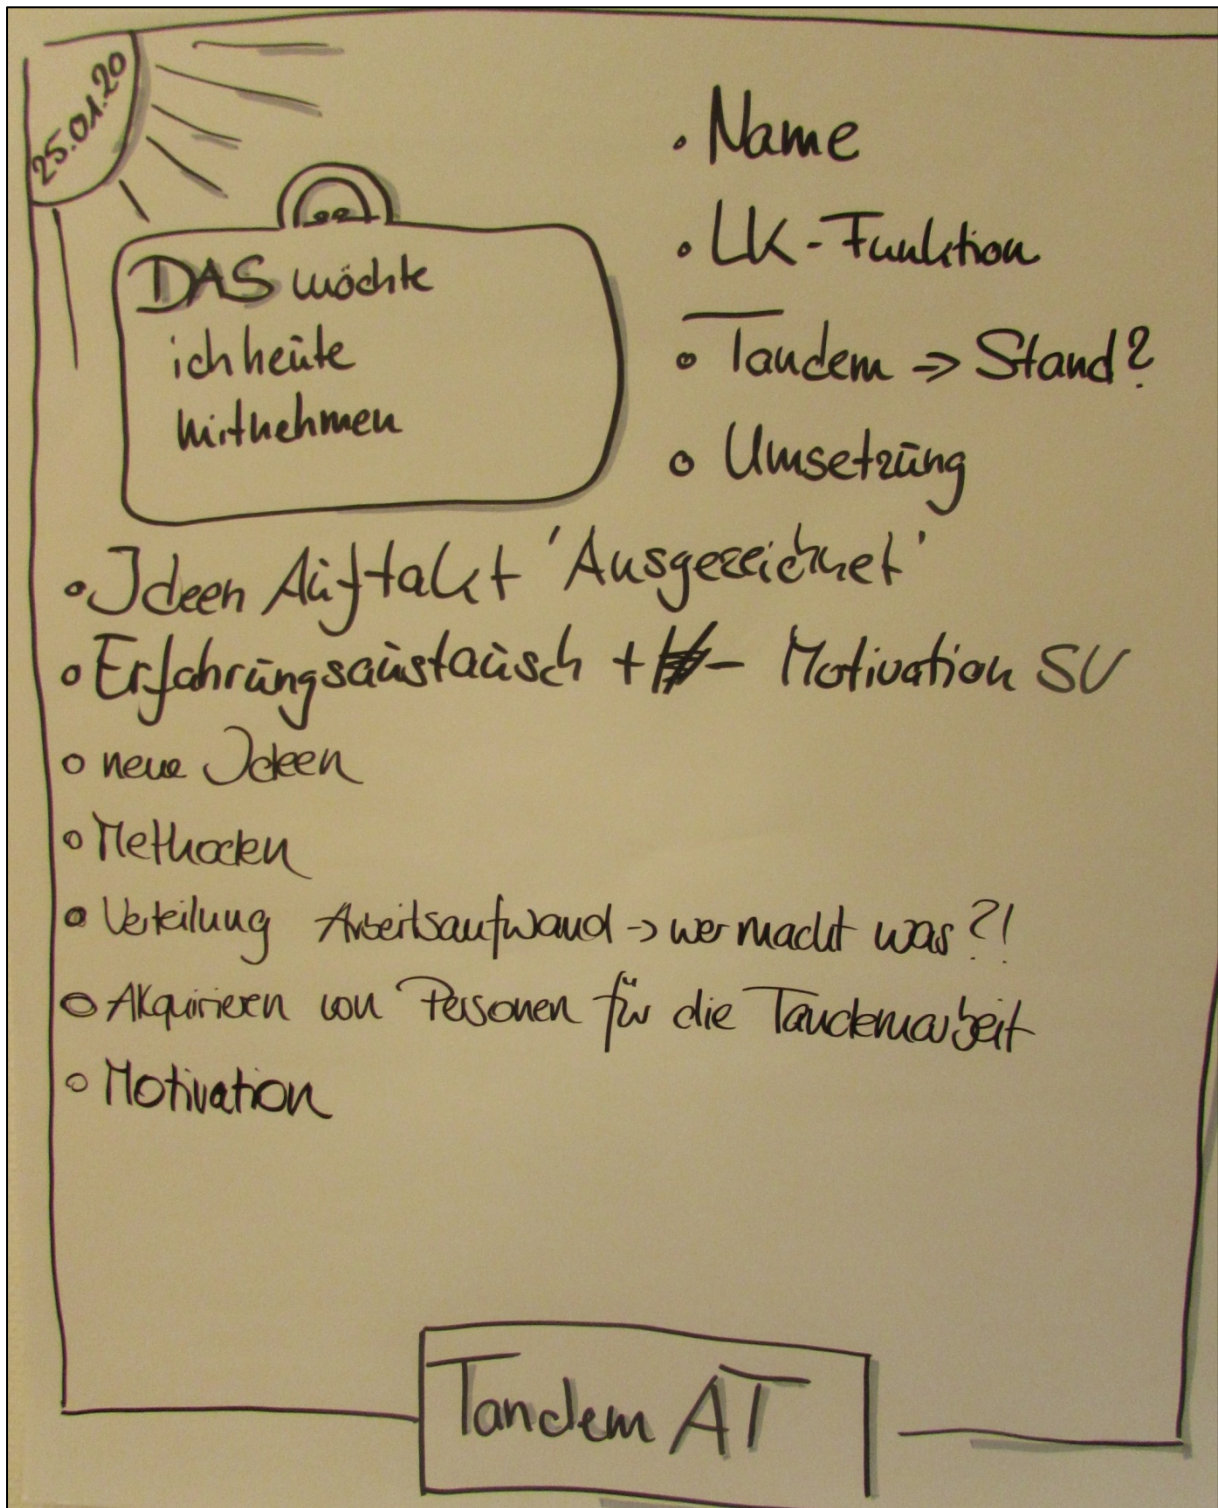 25.01.20
DAS möchte
ich heute
mitnehmen
• Name
• LK-Funktion
• Tandem => Stand?
• Umsetzung
• Ideen Auftakt 'Ausgezeichnet'
• Erfahrungsaustausch + - Motivation SV
• neue Ideen
• Methoden
• Verteilung Arbeitsaufwand -> wer macht was?!
• Akquirieren von Personen für die Tandemarbeit
• Motivation
Tandem AT